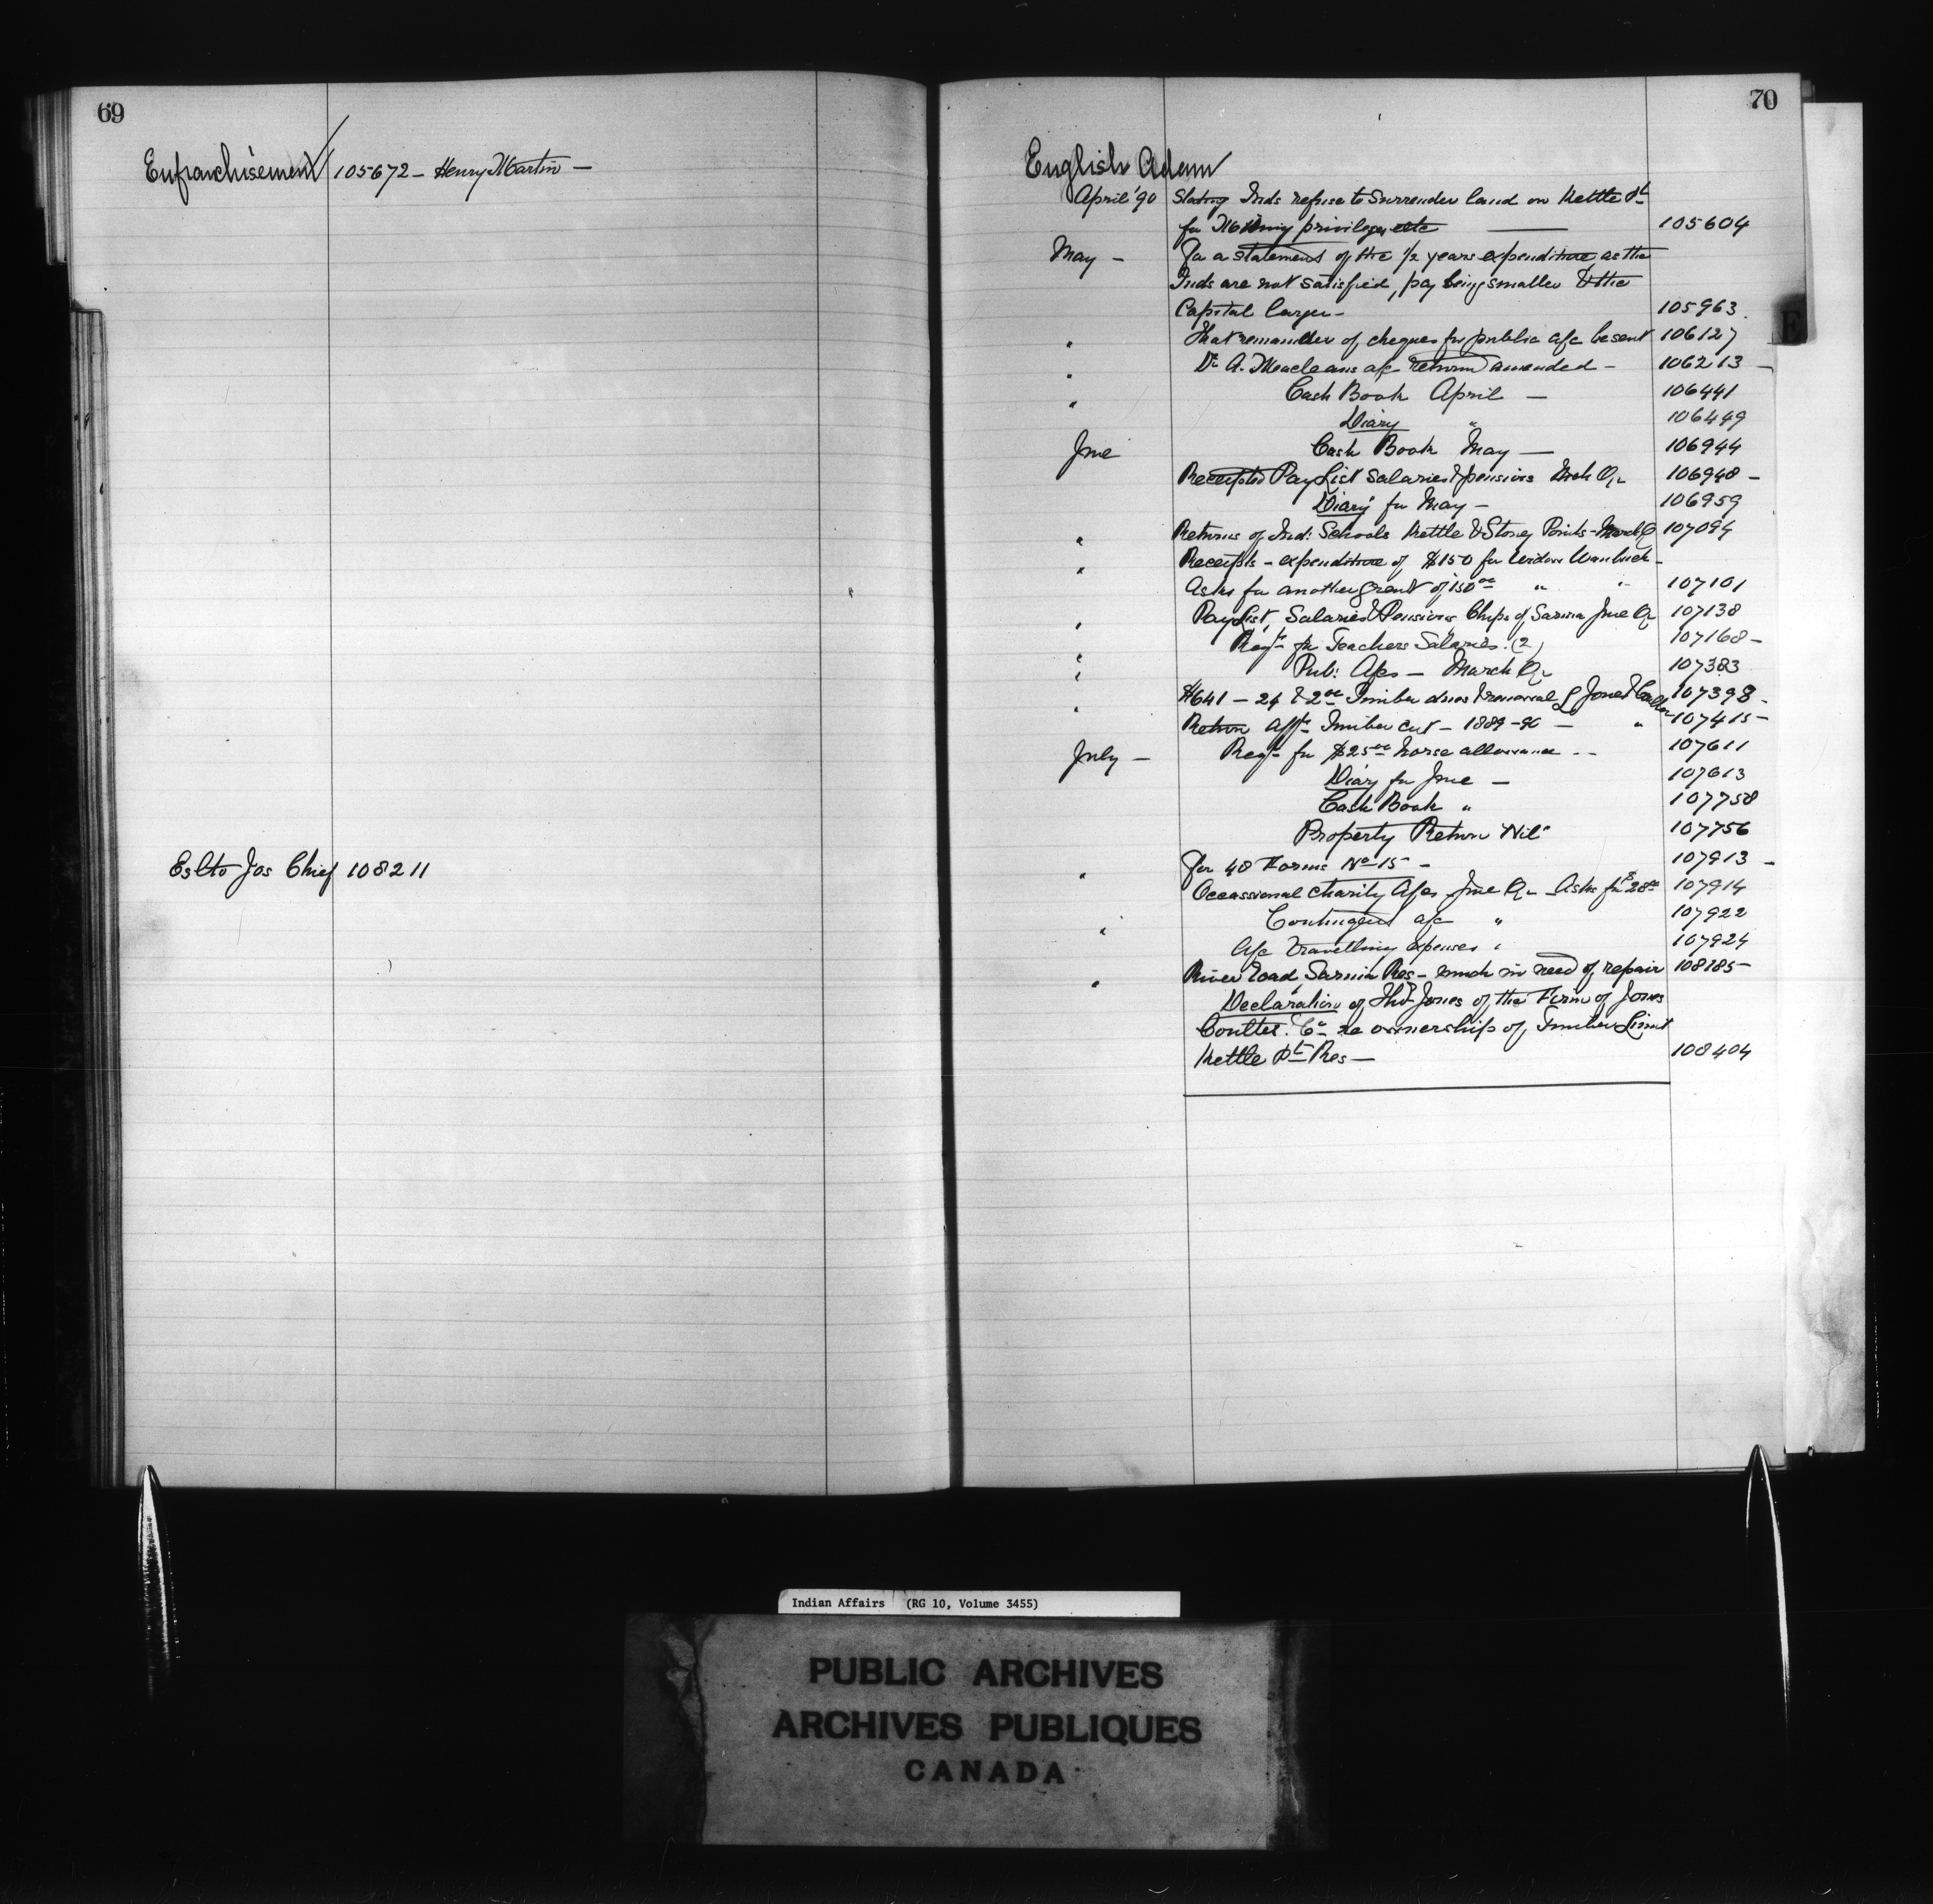 69
Enfranchisement 105672 - Henry Martin -
Eslto Jos Chief 108211
70
English Adam
April '90 Stating Inds refuse to Surrender land on Kettle Pt
for privileges etc 105604
May - For a statement of the 1/2 years expenditure as the
Inds are not satisfied, pay being smaller & the
Capital larger - 105963
" That remainder of cheques for public a/c be sent 106127
" Dr A. Macleans a/c returned amended - 106213 -
" Cash Book April - 106441
Diary " 106449
June Cash Book May - 106944
Receipted Pay List Salaries & pensions Mch Qr 106948 -
Diary for May - 106959
" Returns of Ind: Schools Kettle & Stoney Points - March Q 107094
" Receipts - expenditure of $150 for Widow
Asks for another grant of 150 00 " " 107101
" Pay List, Salaries & Pensions Chips of Sarnia June Qr 107138
" Reqn for Teachers Salaries. (2) 107168 -
" Pub: A/cs - March Qr 107383
" $641 - 24 & 2 00 Timber dues & renewal Jones & 107398 -
Return Timber cut - 1889-90 - " 107415 -
July - Reqn for $25 00 horse allowance - - 107611
Diary for June - 107613
Cash Book " 107758
Property Return "Nil" 107756
" For 48 Forms No 15 - 107913 -
Occassional charity A/cs June Qr - Asks for $28 00 107914
" Contingent a/c " 107922
A/c Travelling Expenses " 107924
" River road, Sarnia Res - much in need of repair 108185 -
Declaration of Thos Jones of the Firm of Jones
Coulter & Co re ownership of Timber Limit
Kettle Pt Res - 108404
E
Indian Affairs (RG 10, Volume 3455)
PUBLIC ARCHIVES
ARCHIVES PUBLIQUES
CANADA